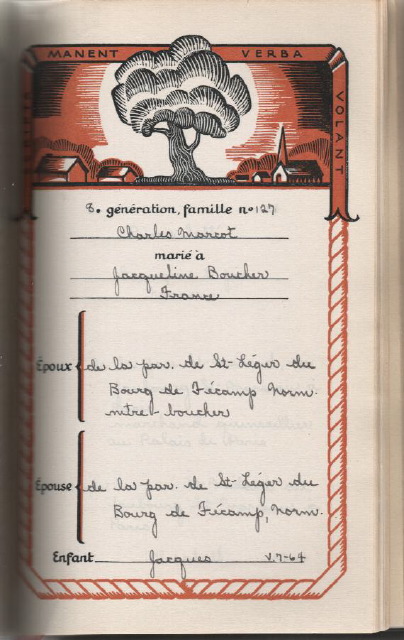 MANENT VERBA VOLANT
8e génération, famille no 127
Charles Marcot
marié à
Jacqueline Boucher
France
Époux de la par. de St-Léger du
Bourg de Fécamp Norm.
mtre-boucher
Épouse de la par. de St-Léger du
Bourg de Fécamp, Norm.
Enfant Jacques V.7-64